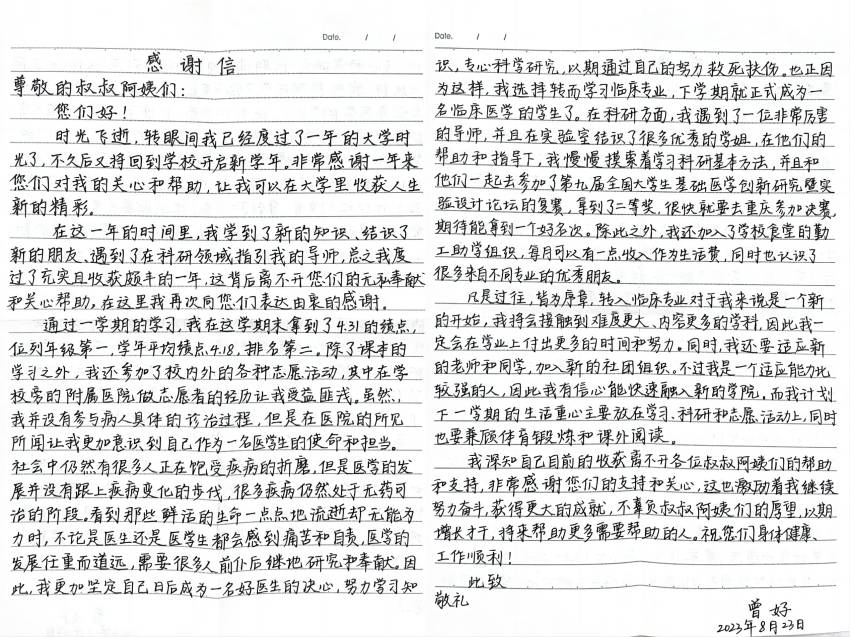 Date.   /   /
感谢信
尊敬的叔叔阿姨们：
您们好！
时光飞逝，转眼间我已经度过了一年的大学时
光了，不久后又将回到学校开启新学年。非常感谢一年来
您们对我的关心和帮助，让我可以在大学里收获人生
新的精彩。
在这一年的时间里，我学到了新的知识、结识了
新的朋友、遇到了在科研领域指引我的导师，总之我度
过了充实且收获颇丰的一年，这背后离不开您们的无私奉献
和关心帮助，在这里我再次向您们表达由衷的感谢。
通过一学期的学习，我在这学期末拿到了4.31的绩点，
位列年级第一，学年平均绩点4.18，排名第二。除了课本的
学习之外，我还参加了校内外的各种志愿活动，其中在学
校旁的附属医院做志愿者的经历让我受益匪浅。虽然，
我并没有参与病人具体的诊治过程，但是在医院的所见
所闻让我更加意识到自己作为一名医学生的使命和担当。
社会中仍然有很多人正在饱受疾病的折磨，但是医学的发
展并没有跟上疾病变化的步伐，很多疾病仍然处于无药可
治的阶段。看到那些鲜活的生命一点点地流逝却无能为
力时，不论是医生还是医学生都会感到痛苦和自责，医学的
发展任重而道远，需要很多人前仆后继地研究和奉献。因
此，我更加坚定自己日后成为一名好医生的决心，努力学习知
Date.   /   /
识，专心科学研究，以期通过自己的努力救死扶伤。也正因
为这样，我选择转而学习临床专业，下学期就正式成为一
名临床医学的学生了。在科研方面，我遇到了一位非常厉害
的导师，并且在实验室结识了很多优秀的学姐，在他们的
帮助和指导下，我慢慢摸索着学习科研基本方法，并且和
他们一起去参加了第九届全国大学生基础医学创新研究暨实
验设计论坛的复赛，拿到了二等奖，很快就要去重庆参加决赛，
期待能拿到一个好名次。除此之外，我还加入了学校食堂的勤
工助学组织，每月可以有一点收入作为生活费，同时也认识了
很多来自不同专业的优秀朋友。
凡是过往，皆为序章，转入临床专业对于我来说是一个新
的开始，我将会接触到难度更大、内容更多的学科，因此我一
定会在学业上付出更多的时间和努力。同时，我还要适应新
的老师和同学，加入新的社团组织。不过我是一个适应能力比
较强的人，因此我有信心能快速融入新的学院。而我计划
下一学期的生活重心主要放在学习、科研和志愿活动上，同时
也要兼顾体育锻炼和课外阅读。
我深知自己目前的收获离不开各位叔叔阿姨们的帮助
和支持，非常感谢您们的支持和关心，这也激励着我继续
努力奋斗，获得更大的成就，不辜负叔叔阿姨们的厚望，以期
增长才干，将来帮助更多需要帮助的人。祝您们身体健康、
工作顺利！
此致
敬礼
曾好
2023年8月23日